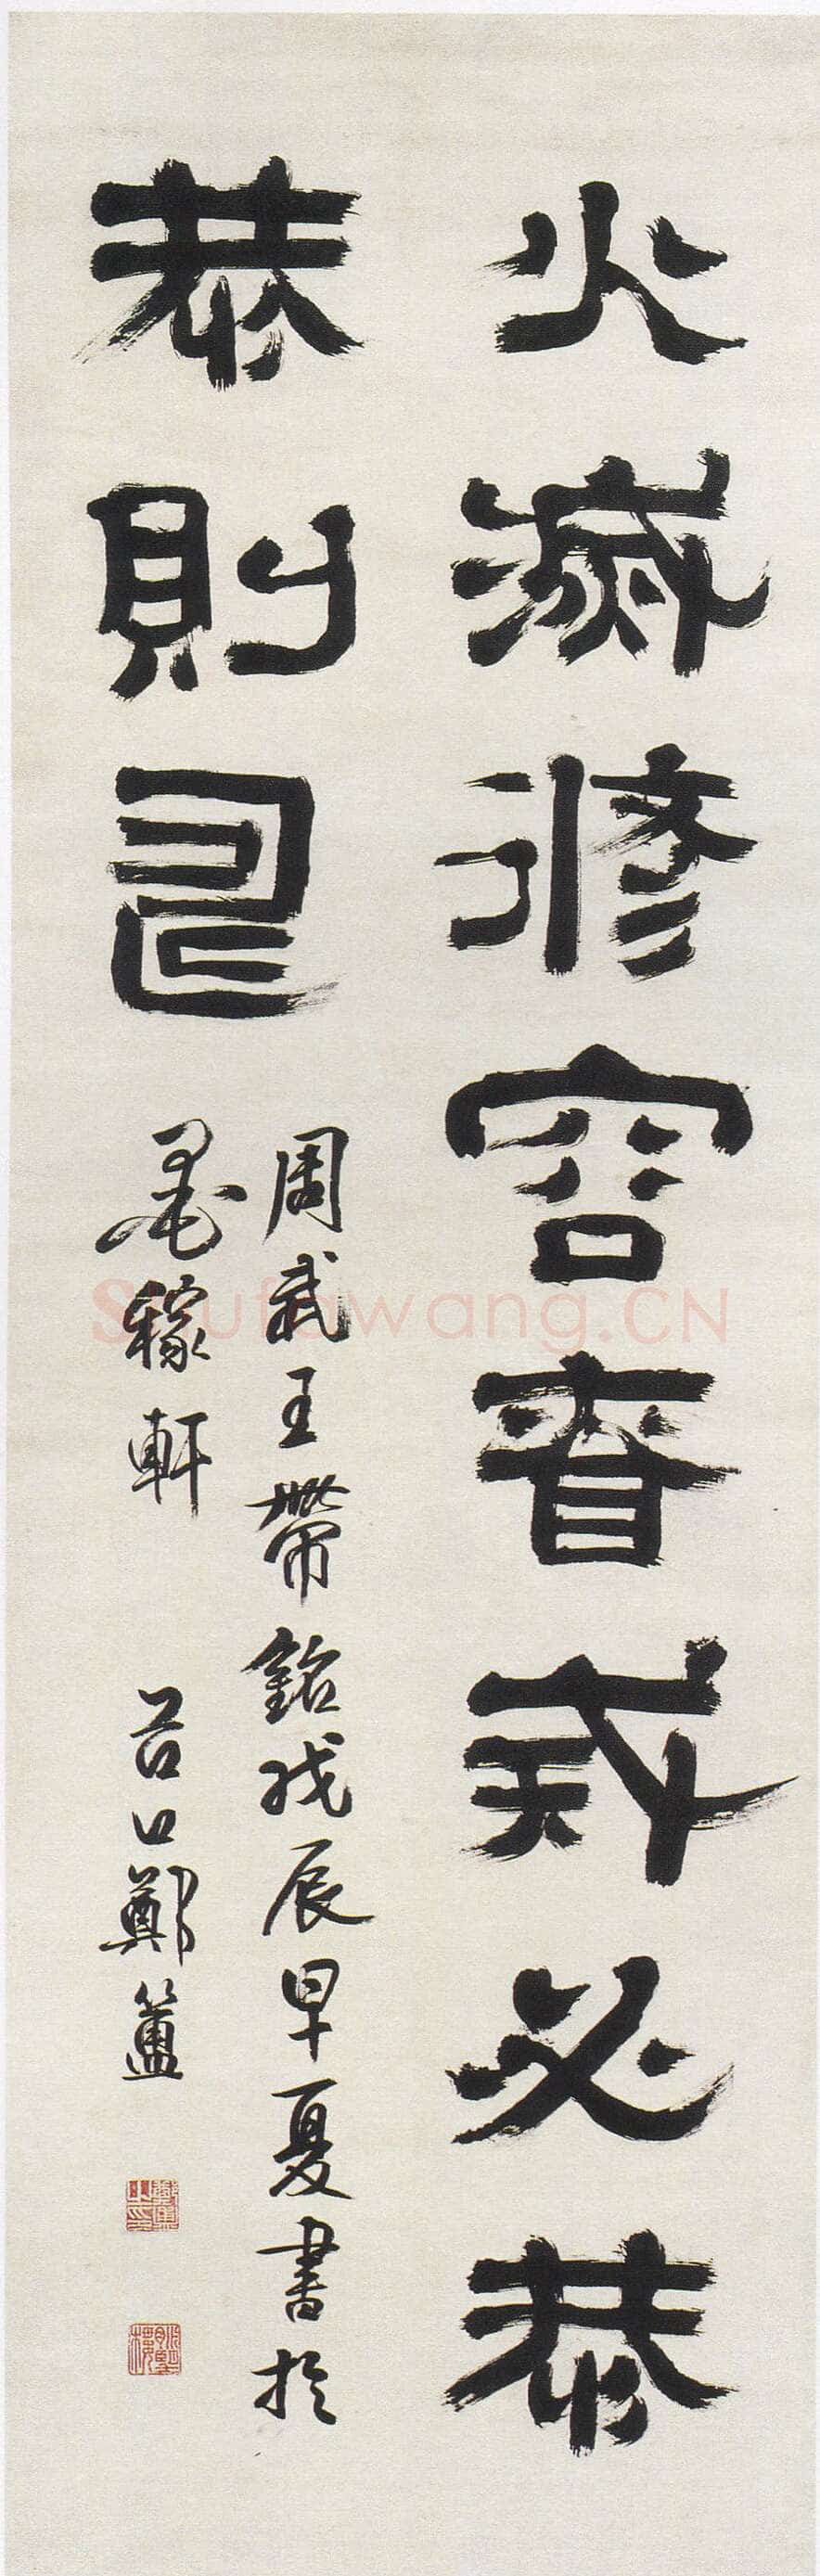 火滅修容眘戒必恭
恭則㠯
周武王帶銘戊辰早夏書於
墨稼軒　谷口鄭簠
Shufawang.CN